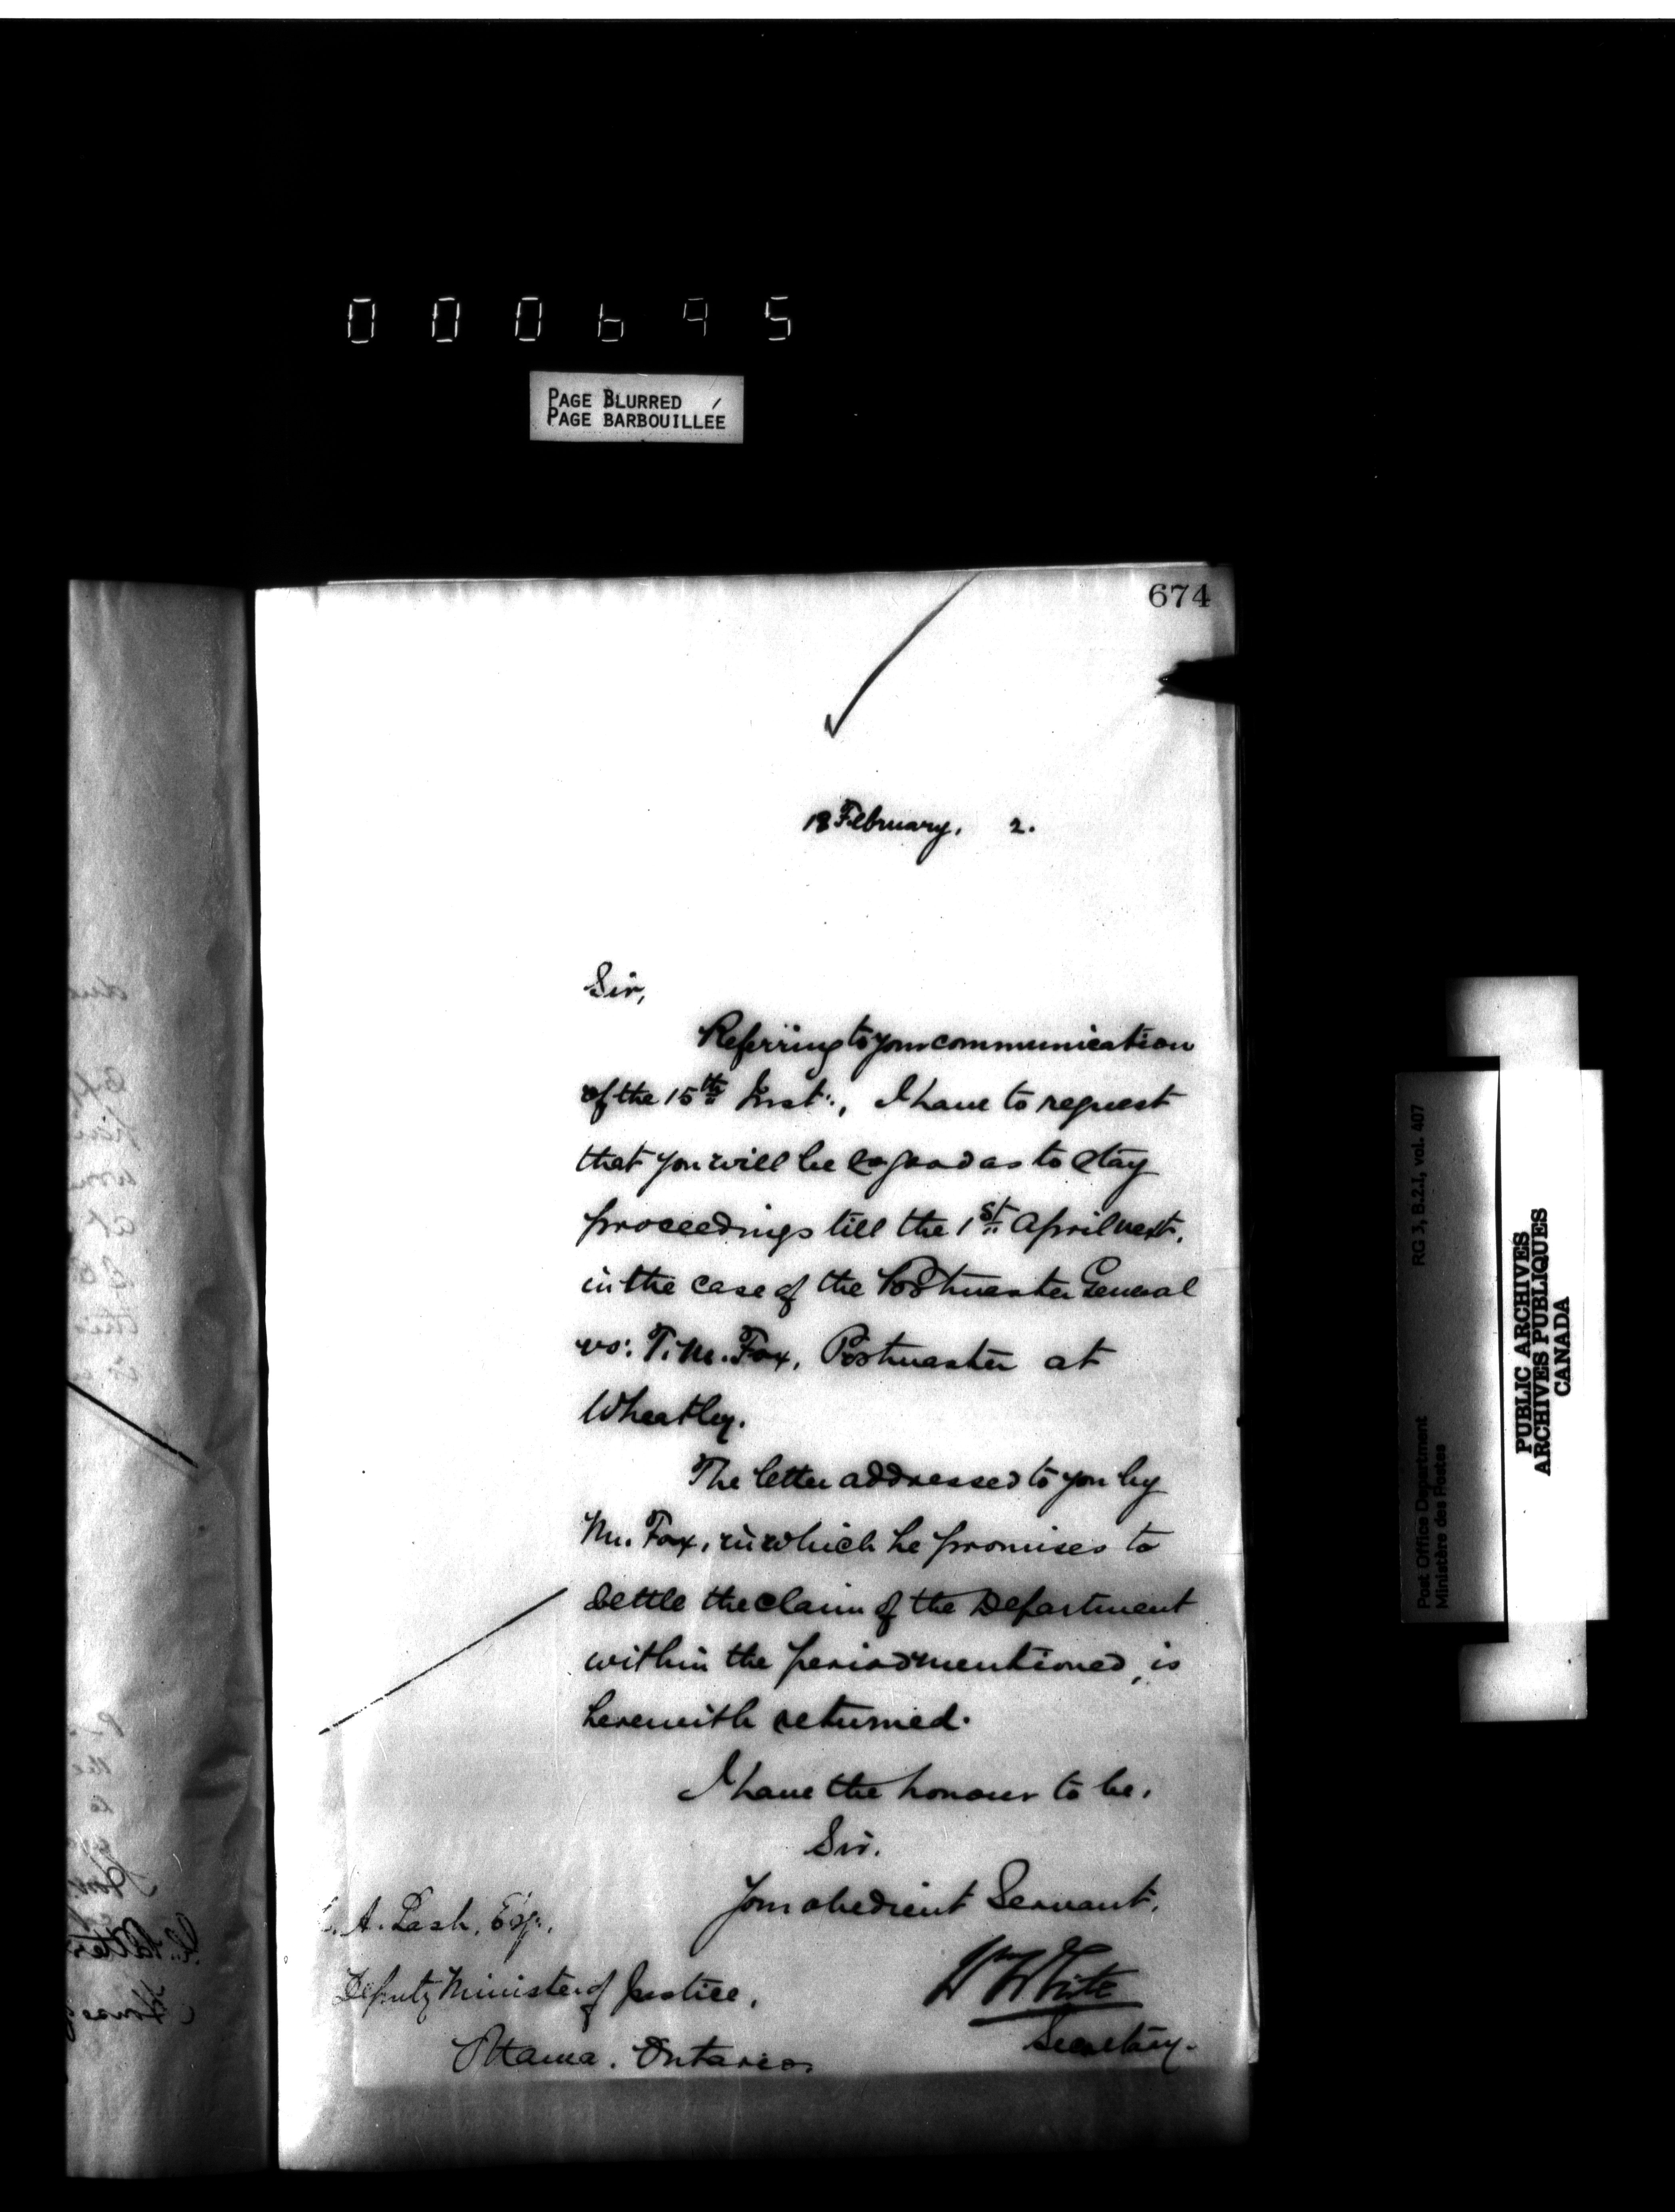 000695
PAGE BLURRED
PAGE BARBOUILLÉE
674
18 February, 2.
Sir,
Referring to your communication
of the 15th Inst:, I have to request
that you will be so good as to stay
proceedings till the 1st April next,
in the case of the Postmaster General
vs: T. M. Fox, Postmaster at
Wheatley.
The letter addressed to you by
Mr. Fox, in which he promises to
settle the claim of the Department
within the period mentioned, is
herewith returned.
I have the honour to be,
Sir.
Your obedient Servant,
Wm White
Secretary.
A. Lash, Esq.,
Deputy Minister of Justice,
Ottawa. Ontario.
RG 3, B.2.I, vol. 407
Post Office Department
Ministère des Postes
PUBLIC ARCHIVES
ARCHIVES PUBLIQUES
CANADA